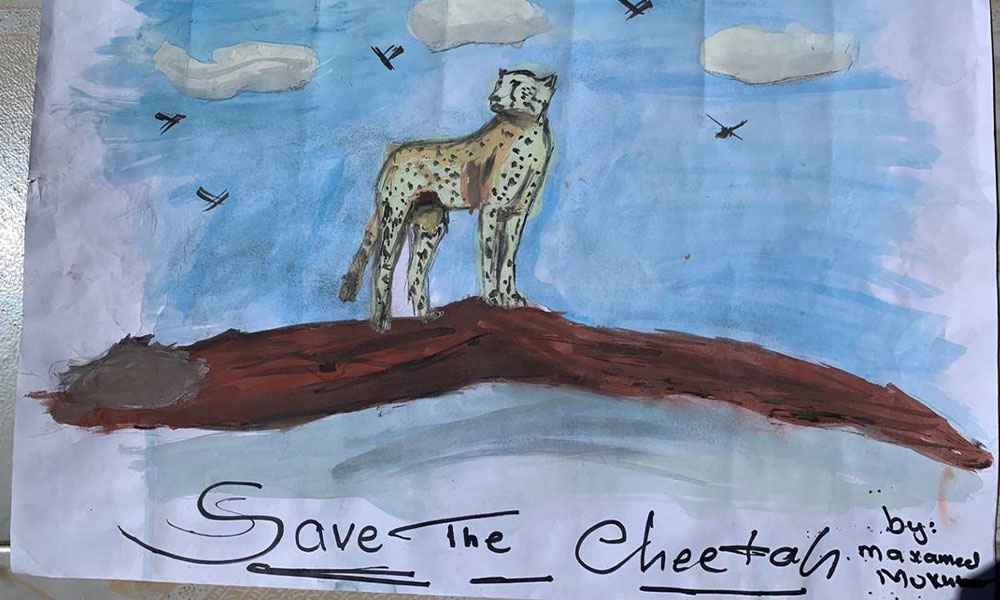 Save The Cheetah.
by:
Maxamed